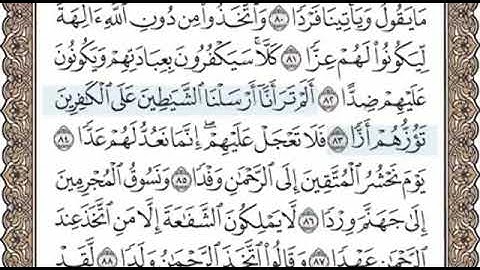 مَا يَقُولُ وَيَأْتِينَا فَرْدًا ٨٠ وَٱتَّخَذُوا۟ مِن دُونِ ٱللَّهِ ءَالِهَةً
لِّيَكُونُوا۟ لَهُمْ عِزًّا ٨١ كَلَّا ۚ سَيَكْفُرُونَ بِعِبَادَتِهِمْ وَيَكُونُونَ
عَلَيْهِمْ ضِدًّا ٨٢ أَلَمْ تَرَ أَنَّآ أَرْسَلْنَا ٱلشَّيَٰطِينَ عَلَى ٱلْكَٰفِرِينَ
تَؤُزُّهُمْ أَزًّا ٨٣ فَلَا تَعْجَلْ عَلَيْهِمْ ۖ إِنَّمَا نَعُدُّ لَهُمْ عَدًّا ٨٤
يَوْمَ نَحْشُرُ ٱلْمُتَّقِينَ إِلَى ٱلرَّحْمَٰنِ وَفْدًا ٨٥ وَنَسُوقُ ٱلْمُجْرِمِينَ
إِلَىٰ جَهَنَّمَ وِرْدًا ٨٦ لَّا يَمْلِكُونَ ٱلشَّفَٰعَةَ إِلَّا مَنِ ٱتَّخَذَ عِندَ
ٱلرَّحْمَٰنِ عَهْدًا ٨٧ وَقَالُوا۟ ٱتَّخَذَ ٱلرَّحْمَٰنُ وَلَدًا ٨٨ لَّقَدْ